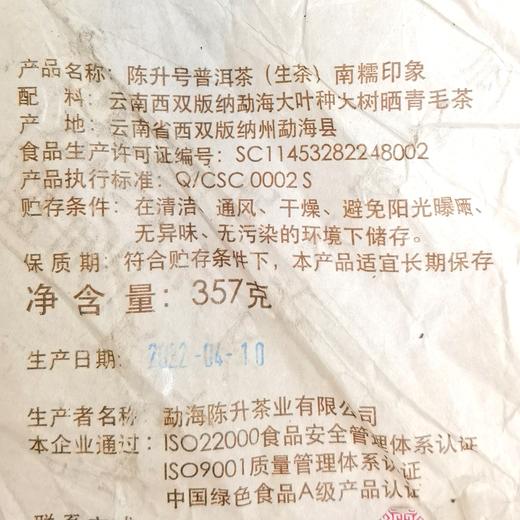 产品名称：陈升号普洱茶（生茶）南糯印象
配　　料：云南西双版纳勐海大叶种大树晒青毛茶
产　　地：云南省西双版纳州勐海县
食品生产许可证编号：SC11453282248002
产品执行标准：Q/CSC 0002 S
贮存条件：在清洁、通风、干燥、避免阳光曝晒、
无异味、无污染的环境下储存。
保 质 期：符合贮存条件下，本产品适宜长期保存
净含量：357克
生产日期：2022-04-10
生产者名称：勐海陈升茶业有限公司
本企业通过：ISO22000食品安全管理体系认证
ISO9001质量管理体系认证
中国绿色食品A级产品认证